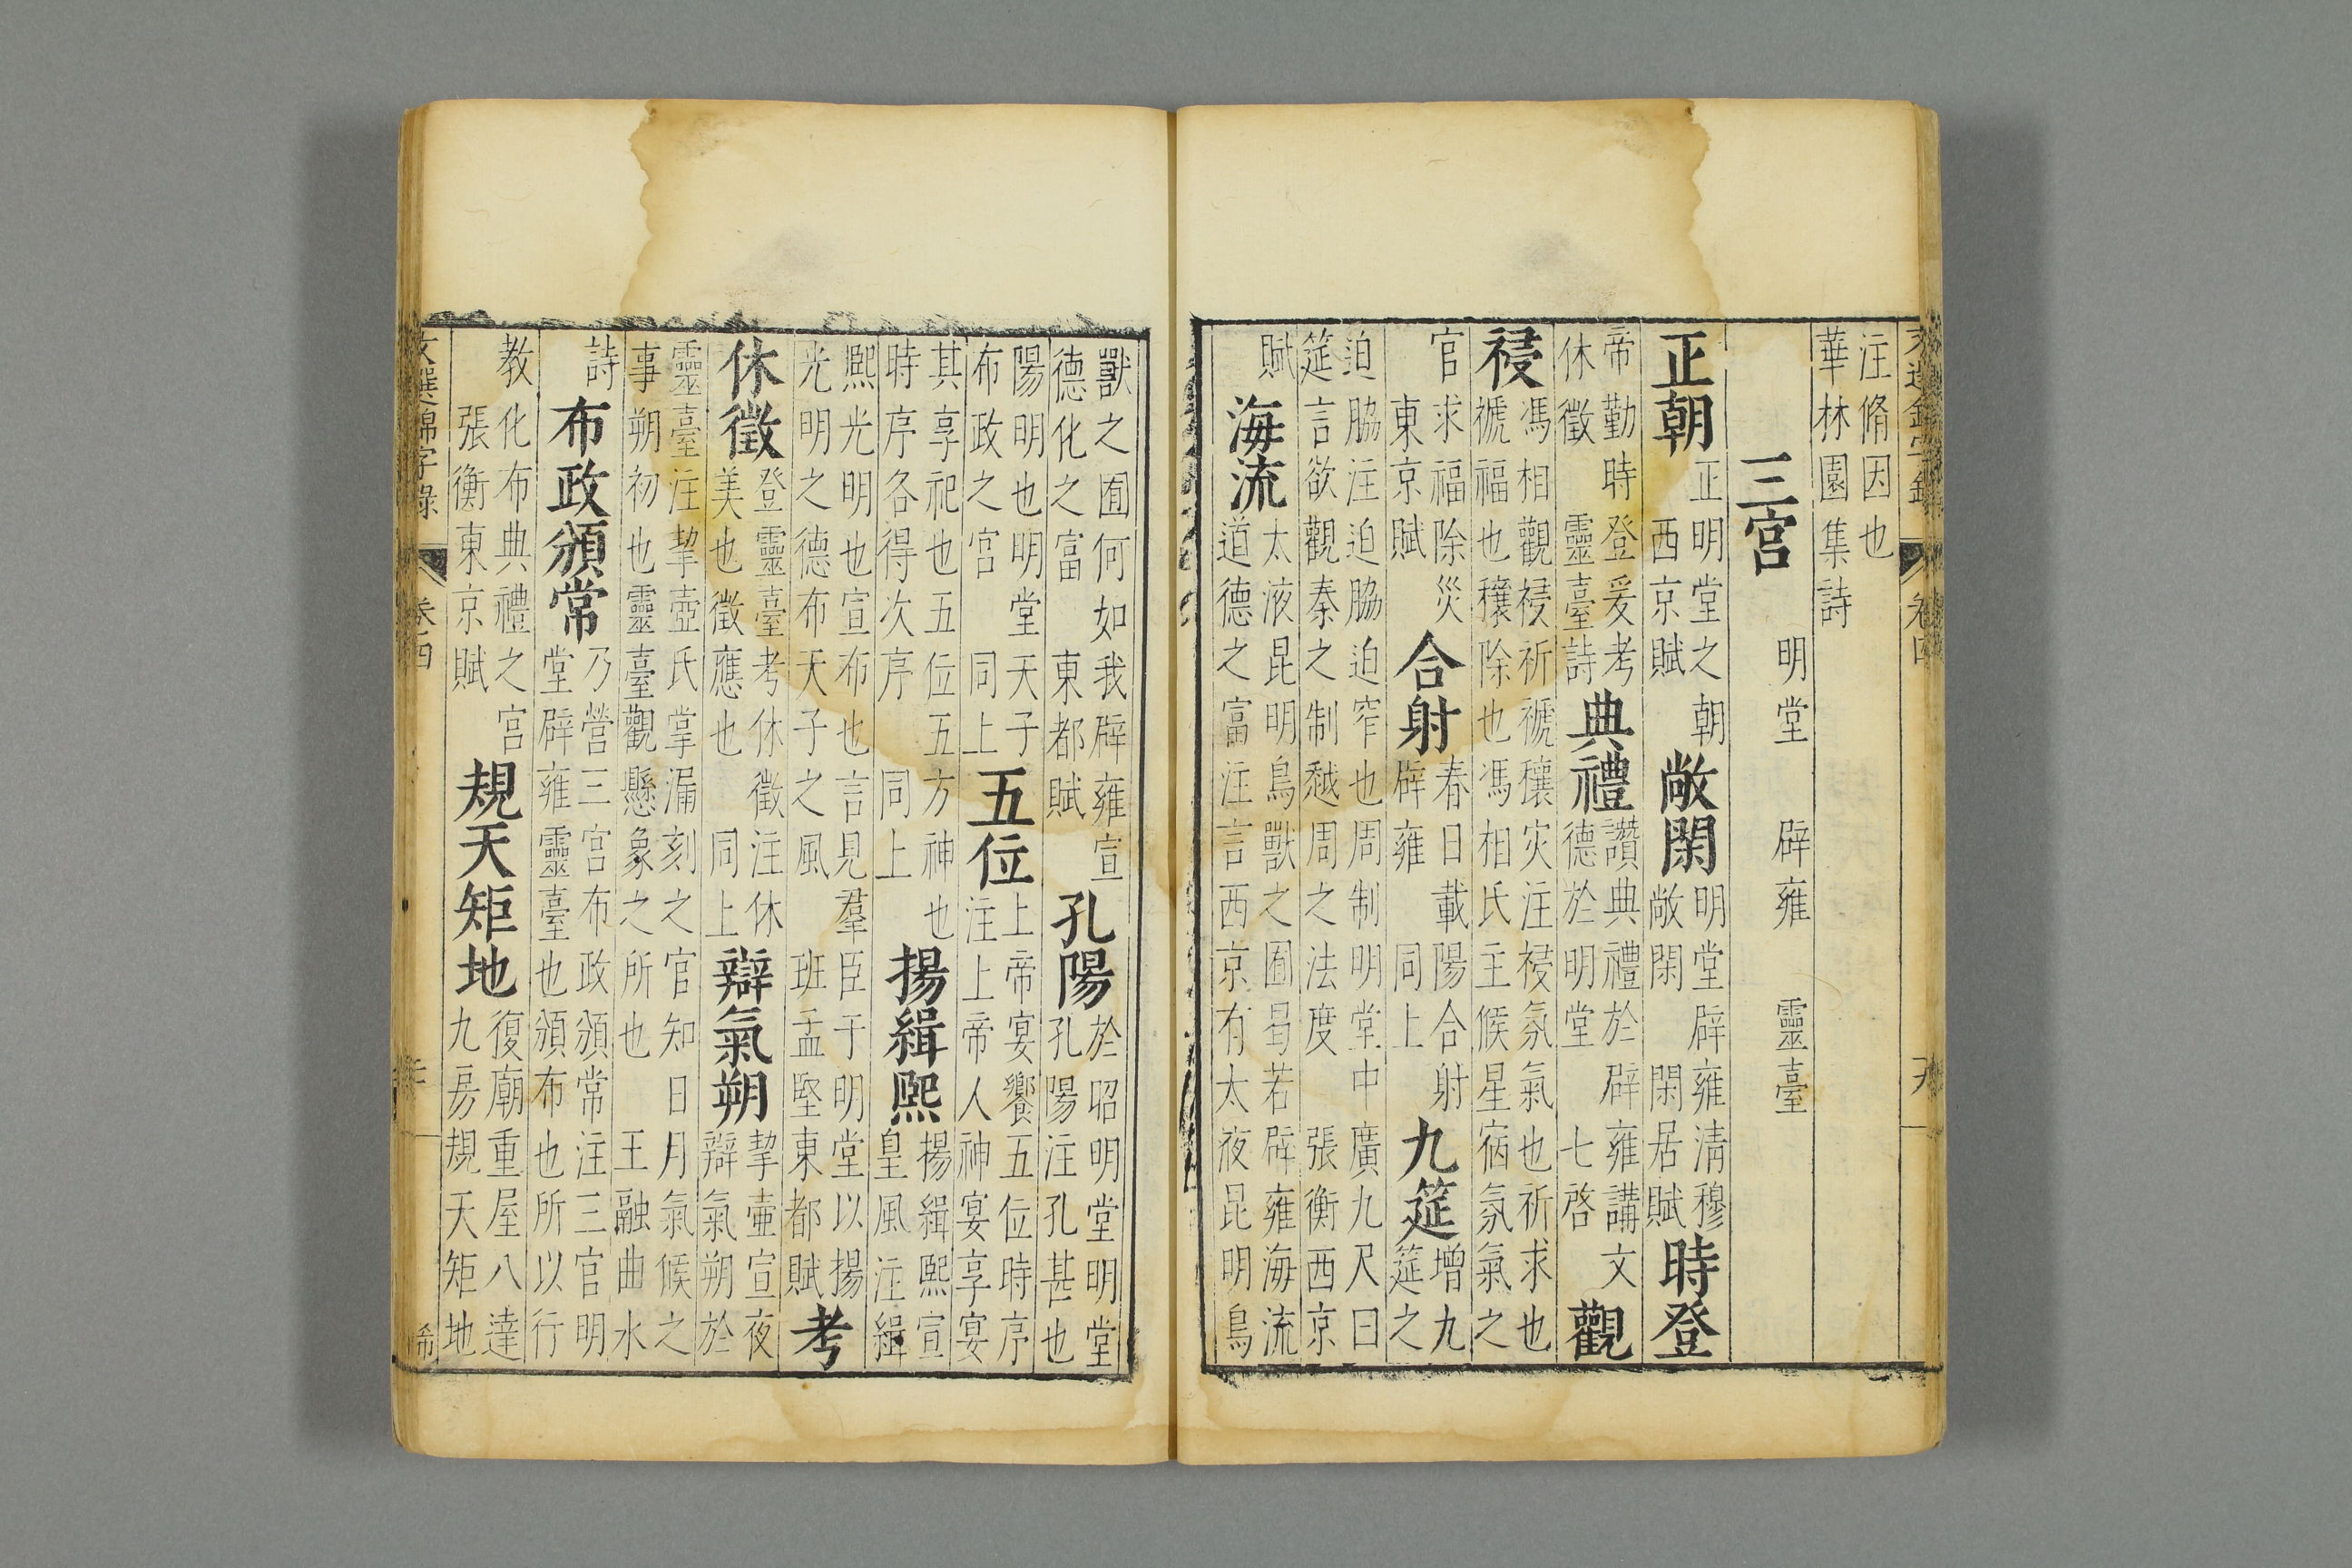 卷四
注脩因也
華林園集詩
三宮 明堂 辟雍 靈臺
正朝
正明堂之朝
西京賦
敞閑
明堂辟雍清穆
敞閑 閑居賦
時登
帝勤時登爰考
休徵 靈臺詩
典禮
讚典禮於辟雍講文
德於明堂 七啓
觀
祲
馮相觀祲祈禠穰灾注祲氛氣也祈求也
禠福也穰除也馮相氏主候星宿氛氣之
官求福除災
東京賦
合射
春日載陽合射
辟雍 同上
九筵
增九
筵之
迫脇注迫脇迫窄也周制明堂中廣九尺曰
筵言欲觀秦之制越周之法度 張衡西京
賦
海流
太液昆明鳥獸之囿曷若辟雍海流
道德之富注言西京有太夜昆明鳥
獸之囿何如我辟雍宣
德化之富 東都賦
孔陽
於昭明堂明堂
孔陽注孔甚也
陽明也明堂天子
布政之宮 同上
五位
上帝宴饗五位時序
注上帝人神宴享宴
其享祀也五位五方神也
時序各得次序 同上
揚緝熙
揚緝熙宣
皇風注緝
熙光明也宣布也言見羣臣于明堂以揚
光明之德布天子之風 班孟堅東都賦
考
休徵
登靈臺考休徵注休
美也徵應也 同上
辯氣朔
挈壷宣夜
辯氣朔於
靈臺注挈壺氏掌漏刻之官知日月氣候之
事朔初也靈臺觀懸象之所也 王融曲水
詩
布政頒常
乃營三宮布政頒常注三官明
堂辟雍靈臺也頒布也所以行
教化布典禮之宮
張衡東京賦
規天矩地
復廟重屋八達
九房規天矩地
文選錦字錄 卷四